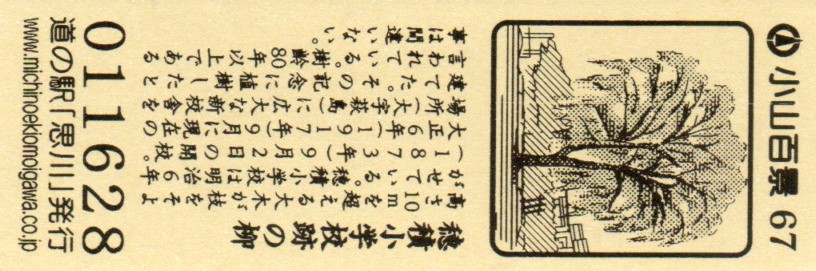 小山百景 67
穂積小学校跡の柳
高さ10mを超える大木が枝をそよ
がせている。穂積小学校は明治6年
(1873年)9月2日の開校。
大正6年(1917年)9月に現在の
場所(大字萩島)に広大な新校舎を
建てた。その記念に植樹したと
言われている。樹齢80年以上である
事は間違いない。
011628
道の駅「思川」発行
www.michinoekiomoigawa.co.jp